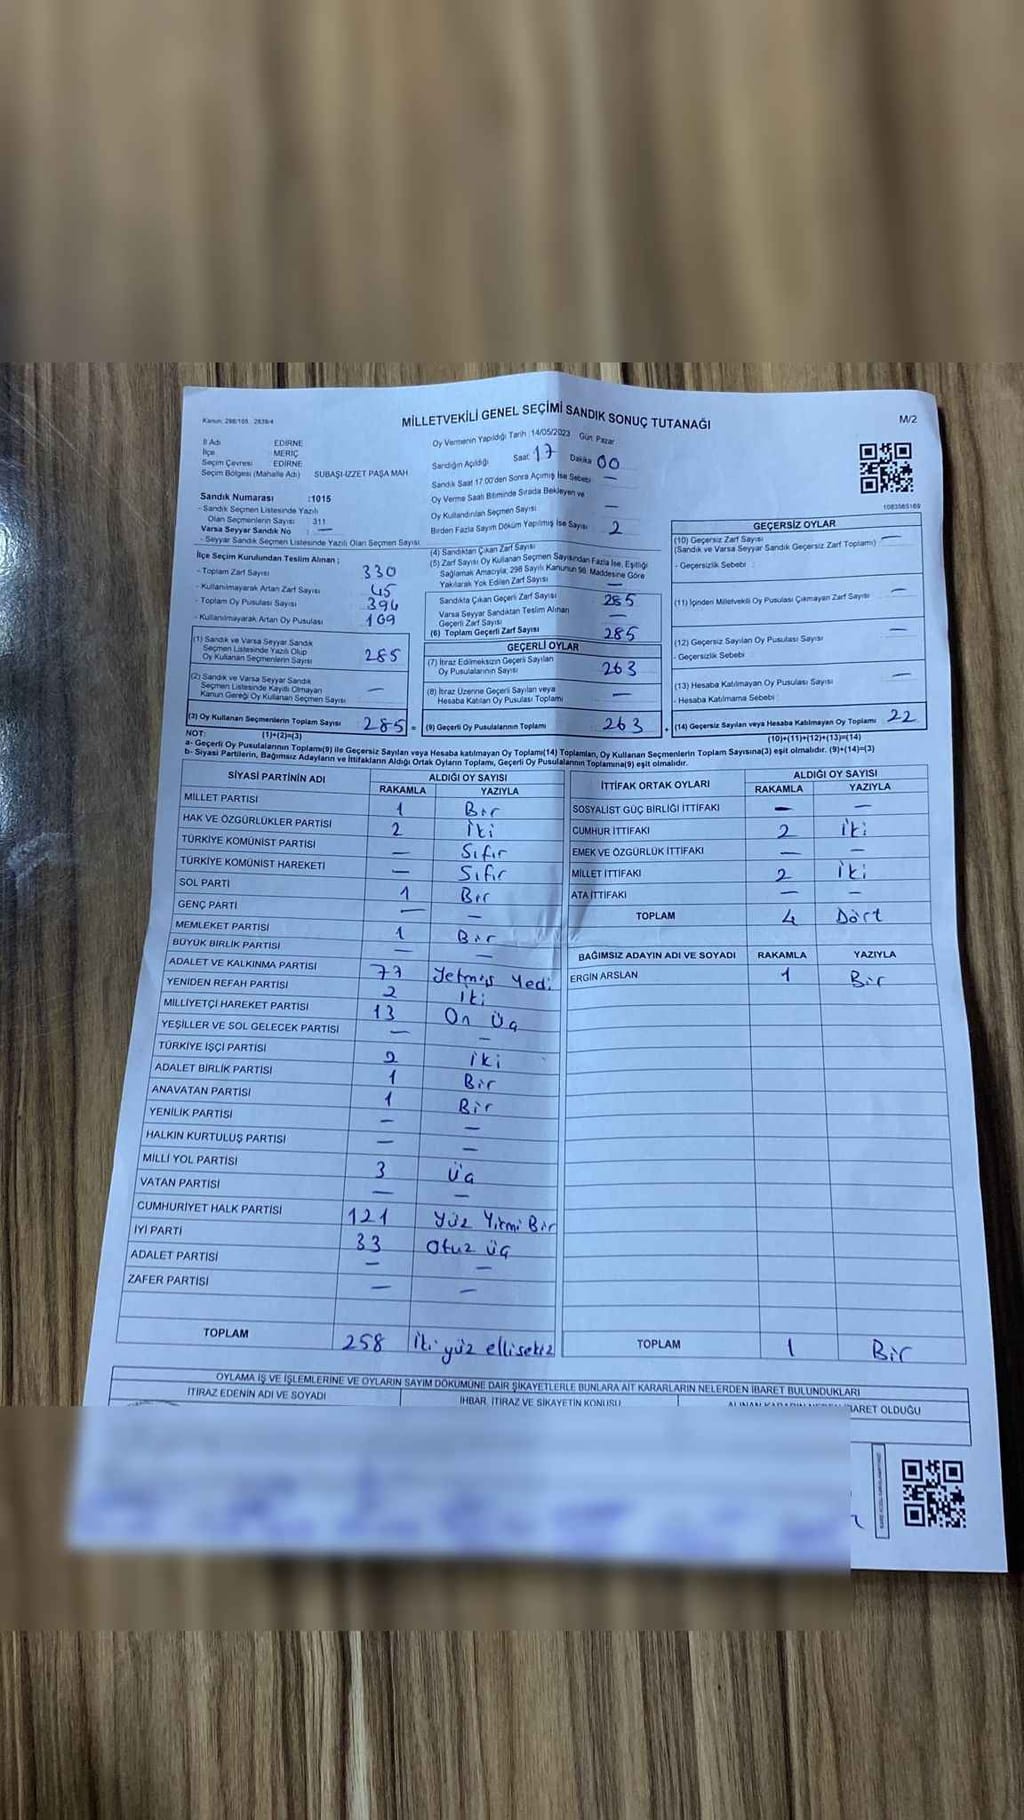 Kanun: 298/105, 2839/4
MİLLETVEKİLİ GENEL SEÇİMİ SANDIK SONUÇ TUTANAĞI
M/2
İl Adı EDİRNE
İlçe MERİÇ
Seçim Çevresi EDİRNE
Seçim Bölgesi (Mahalle Adı) SUBAŞI-İZZET PAŞA MAH
Oy Vermenin Yapıldığı Tarih :14/05/2023 Gün: Pazar
Sandığın Açıldığı Saat 17 Dakika 00
Sandık Saat 17.00'den Sonra Açılmış İse Sebebi —
Oy Verme Saati Bitiminde Sırada Bekleyen ve
Oy Kullandırılan Seçmen Sayısı —
Birden Fazla Sayım Döküm Yapılmış İse Sayısı 2
Sandık Numarası :1015
- Sandık Seçmen Listesinde Yazılı
Olan Seçmenlerin Sayısı 311
Varsa Seyyar Sandık No : —
- Seyyar Sandık Seçmen Listesinde Yazılı Olan Seçmen Sayısı
1083565169
İlçe Seçim Kurulundan Teslim Alınan ;
- Toplam Zarf Sayısı 330
- Kullanılmayarak Artan Zarf Sayısı 45
- Toplam Oy Pusulası Sayısı 394
- Kullanılmayarak Artan Oy Pusulası 109
(1) Sandık ve Varsa Seyyar Sandık
Seçmen Listesinde Yazılı Olup
Oy Kullanan Seçmenlerin Sayısı 285
(2) Sandık ve Varsa Seyyar Sandık
Seçmen Listesinde Kayıtlı Olmayan
Kanun Gereği Oy Kullanan Seçmen Sayısı —
(3) Oy Kullanan Seçmenlerin Toplam Sayısı 285
(1)+(2)=(3)
(4) Sandıktan Çıkan Zarf Sayısı
(5) Zarf Sayısı Oy Kullanan Seçmen Sayısından Fazla İse, Eşitliği
Sağlamak Amacıyla; 298 Sayılı Kanunun 98. Maddesine Göre
Yakılarak Yok Edilen Zarf Sayısı —
Sandıkta Çıkan Geçerli Zarf Sayısı 285
Varsa Seyyar Sandıktan Teslim Alınan
Geçerli Zarf Sayısı —
(6) Toplam Geçerli Zarf Sayısı 285
GEÇERLİ OYLAR
(7) İtiraz Edilmeksizin Geçerli Sayılan
Oy Pusulalarının Sayısı 263
(8) İtiraz Üzerine Geçerli Sayılan veya
Hesaba Katılan Oy Pusulası Toplamı —
= (9) Geçerli Oy Pusulalarının Toplamı 263
GEÇERSİZ OYLAR
(10) Geçersiz Zarf Sayısı —
(Sandık ve Varsa Seyyar Sandık Geçersiz Zarf Toplamı)
- Geçersizlik Sebebi :
(11) İçinden Milletvekili Oy Pusulası Çıkmayan Zarf Sayısı —
(12) Geçersiz Sayılan Oy Pusulası Sayısı —
- Geçersizlik Sebebi :
(13) Hesaba Katılmayan Oy Pusulası Sayısı —
- Hesaba Katılmama Sebebi :
+ (14) Geçersiz Sayılan veya Hesaba Katılmayan Oy Toplamı 22
(10)+(11)+(12)+(13)=(14)
NOT:
a- Geçerli Oy Pusulalarının Toplamı(9) ile Geçersiz Sayılan veya Hesaba katılmayan Oy Toplamı(14) Toplamları, Oy Kullanan Seçmenlerin Toplam Sayısına(3) eşit olmalıdır. (9)+(14)=(3)
b- Siyasi Partilerin, Bağımsız Adayların ve İttifakların Aldığı Ortak Oyların Toplamı, Geçerli Oy Pusulalarının Toplamına(9) eşit olmalıdır.
SİYASİ PARTİNİN ADI ALDIĞI OY SAYISI
RAKAMLA YAZIYLA
MİLLET PARTİSİ 1 Bir
HAK VE ÖZGÜRLÜKLER PARTİSİ 2 İki
TÜRKİYE KOMÜNİST PARTİSİ — Sıfır
TÜRKİYE KOMÜNİST HAREKETİ — Sıfır
SOL PARTİ 1 Bir
GENÇ PARTİ — —
MEMLEKET PARTİSİ 1 Bir
BÜYÜK BİRLİK PARTİSİ — —
ADALET VE KALKINMA PARTİSİ 77 Yetmiş Yedi
YENİDEN REFAH PARTİSİ 2 İki
MİLLİYETÇİ HAREKET PARTİSİ 13 On Üç
YEŞİLLER VE SOL GELECEK PARTİSİ — —
TÜRKİYE İŞÇİ PARTİSİ 2 iki
ADALET BİRLİK PARTİSİ 1 Bir
ANAVATAN PARTİSİ 1 Bir
YENİLİK PARTİSİ — —
HALKIN KURTULUŞ PARTİSİ — —
MİLLİ YOL PARTİSİ 3 Üç
VATAN PARTİSİ — —
CUMHURİYET HALK PARTİSİ 121 Yüz Yirmi Bir
İYİ PARTİ 33 Otuz üç
ADALET PARTİSİ — —
ZAFER PARTİSİ — —
TOPLAM 258 İki yüz ellisekiz
İTTİFAK ORTAK OYLARI ALDIĞI OY SAYISI
RAKAMLA YAZIYLA
SOSYALİST GÜÇ BİRLİĞİ İTTİFAKI — —
CUMHUR İTTİFAKI 2 İki
EMEK VE ÖZGÜRLÜK İTTİFAKI — —
MİLLET İTTİFAKI 2 İki
ATA İTTİFAKI — —
TOPLAM 4 Dört
BAĞIMSIZ ADAYIN ADI VE SOYADI RAKAMLA YAZIYLA
ERGİN ARSLAN 1 Bir
TOPLAM 1 Bir
OYLAMA İŞ VE İŞLEMLERİNE VE OYLARIN SAYIM DÖKÜMÜNE DAİR ŞİKAYETLERLE BUNLARA AİT KARARLARIN NELERDEN İBARET BULUNDUKLARI
İTİRAZ EDENİN ADI VE SOYADI İHBAR, İTİRAZ VE ŞİKAYETİN KONUSU İBARET OLDUĞU